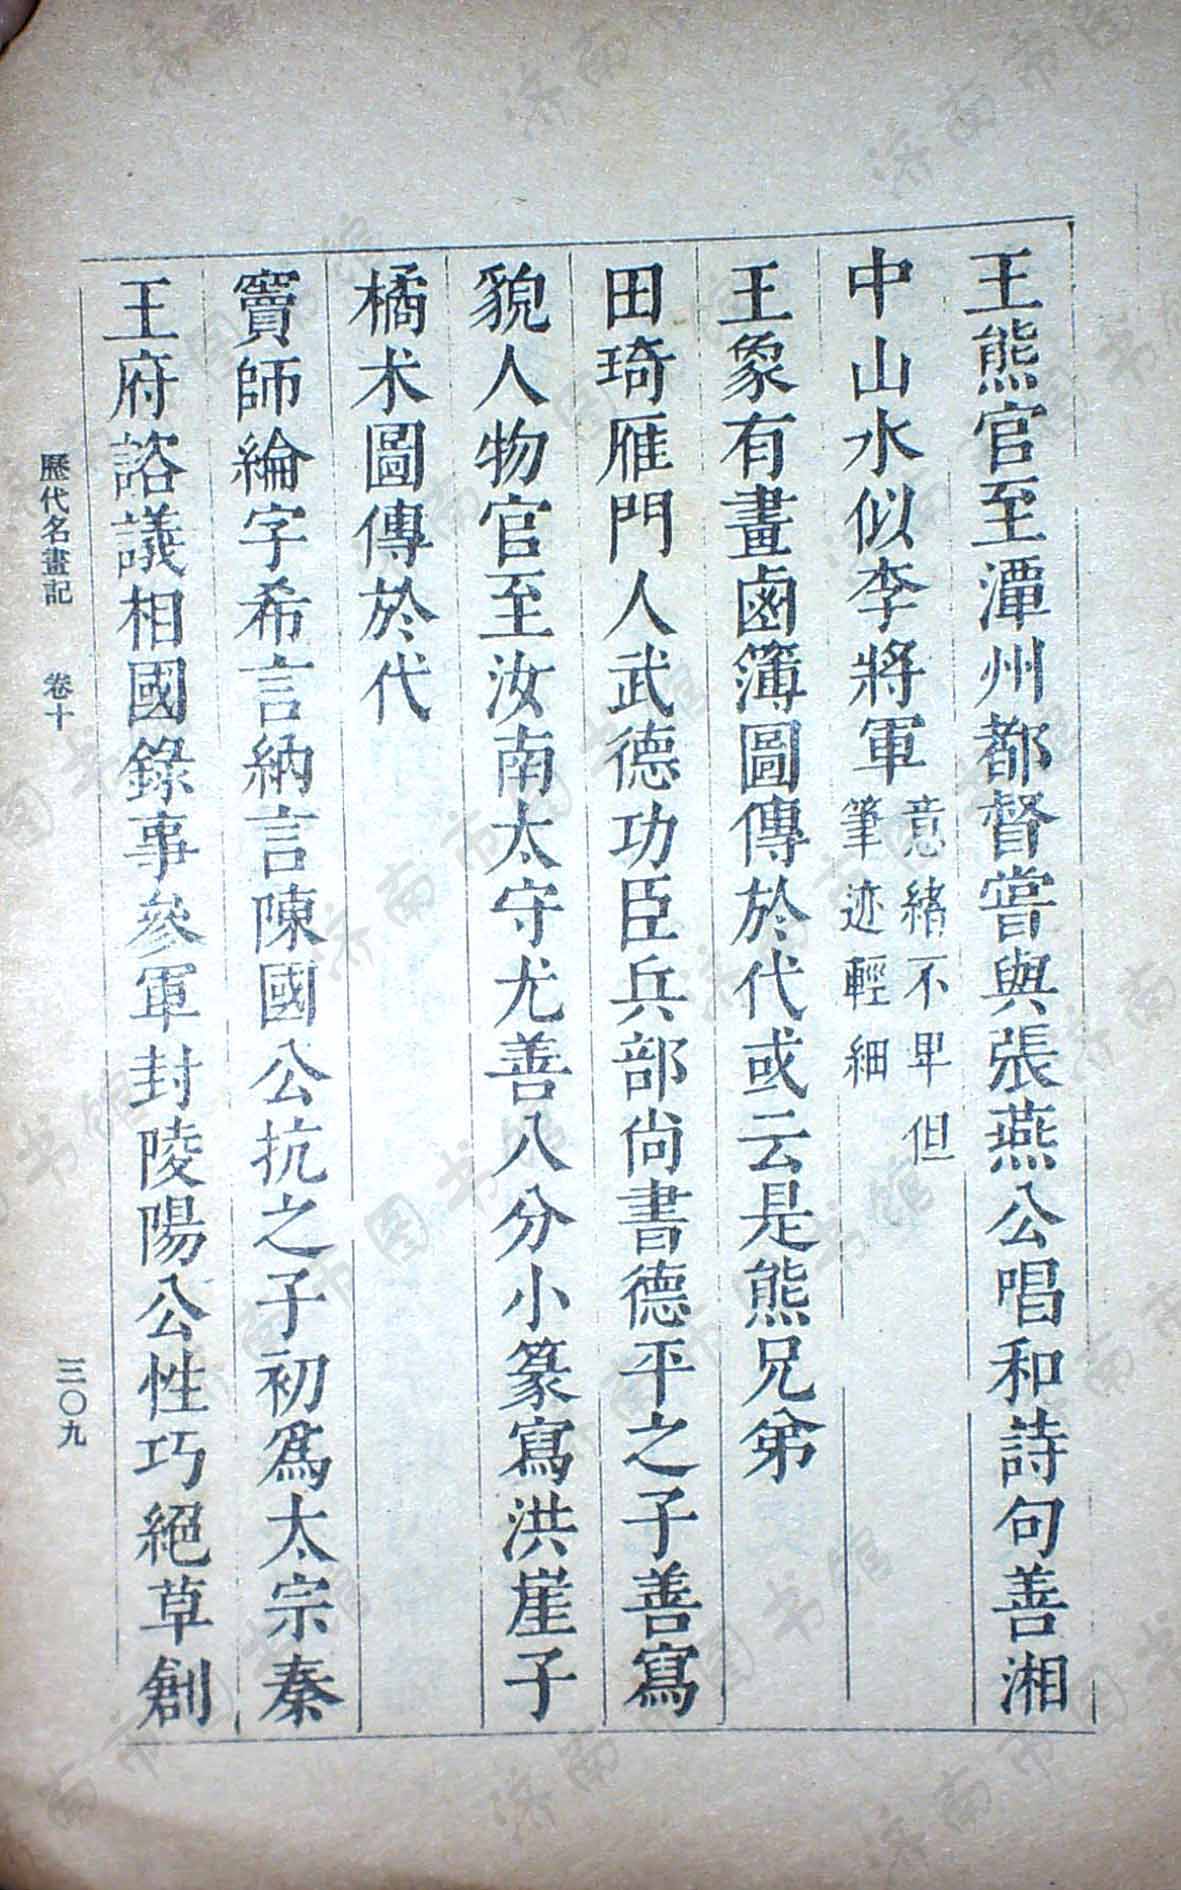 王熊官至潭州都督嘗與張燕公唱和詩句善湘
中山水似李將軍意緒不卑但
筆迹輕細
王象有畫鹵簿圖傳於代或云是熊兄弟
田琦雁門人武德功臣兵部尚書德平之子善寫
貌人物官至汝南太守尤善八分小篆寫洪崖子
橘木圖傳於代
竇師綸字希言納言陳國公抗之子初爲太宗秦
王府諮議相國錄事參軍封陵陽公性巧絕草創
歷代名畫記 卷十 三〇九
济南市图书馆